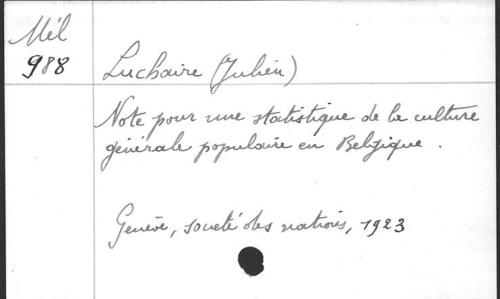 Mél
988
Luchaire (Julien)
Note pour une statistique de la culture
générale populaire en Belgique.
Genève, société des nations, 1923